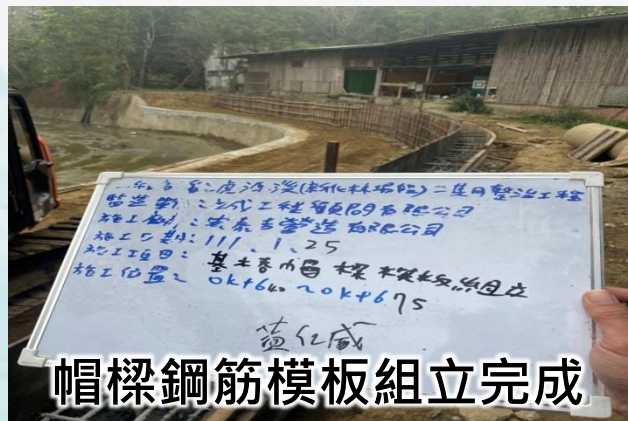 工程名稱:虎源溪(新化林場段)二集目整治工程
監造單位:成工程顧問有限公司
施工廠商:泰吉營造有限公司
施工日期:111、1、25
施工項目:基樁帽樑模板組立
施工位置:0k+640~0k+675
黃仁威
帽樑鋼筋模板組立完成